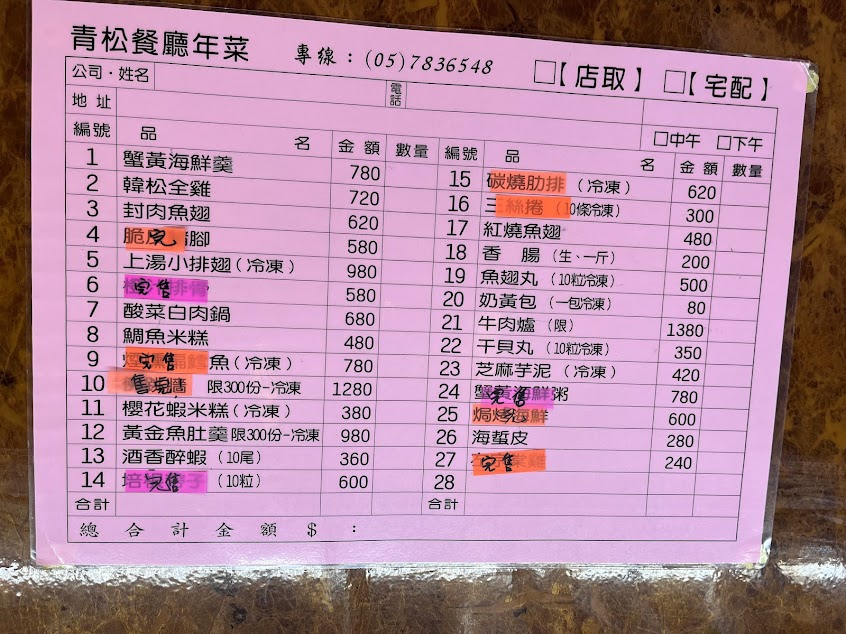 青松餐廳年菜 專線：(05)7836548 □【店取】 □【宅配】
公司．姓名 電話
地址 □中午 □下午
編號 品名 金額 數量 編號 品名 金額 數量
1 蟹黃海鮮羹 780
2 韓松全雞 720
3 封肉魚翅 620
4 脆 完 腳 580
5 上湯小排翅(冷凍) 980
6 完售 排骨 580
7 酸菜白肉鍋 680
8 鯛魚米糕 480
9 完售 魚(冷凍) 780
10 售完 醬 限300份-冷凍 1280
11 櫻花蝦米糕(冷凍) 380
12 黃金魚肚羹 限300份-冷凍 980
13 酒香醉蝦 (10尾) 360
14 完售 子 (10粒) 600
合計
15 碳燒肋排 (冷凍) 620
16 三絲捲 (10條冷凍) 300
17 紅燒魚翅 480
18 香腸 (生、一斤) 200
19 魚翅丸 (10粒冷凍) 500
20 奶黃包 (一包冷凍) 80
21 牛肉爐 (限) 1380
22 干貝丸 (10粒冷凍) 350
23 芝麻芋泥 (冷凍) 420
24 蟹黃海鮮粥 完售 780
25 焗烤海鮮 完 600
26 海蜇皮 280
27 完售 雞 240
28
合計
總合計金額 $ ：